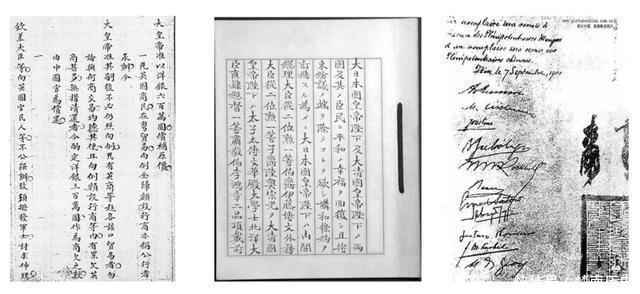 大皇帝准以洋銀六百萬圓償補原價
一凡英國商民在粵貿易向例全歸額設行商亦稱公行者
承辦今
大皇帝准其嗣後不必仍照向例凡有英商等赴各該口貿易者勿
論與何商交易均聽其便且向例額設行商等內有累欠英
商甚多無措清還者今酌定洋銀三百萬圓作為商欠之數
由中國官為償還
一
欽差大臣等向英國官民人等不公強辦致須撥發軍士討求伸理
大日本國皇帝陛下及大清國皇帝陛下ハ兩
國及其ノ臣民ニ平和ノ幸福ヲ回復シ且將
來紛議ノ端ヲ除クコトヲ欲シ媾和條約ヲ
訂結スル為メニ大日本國皇帝陛下ハ內閣
總理大臣從二位勳一等伯爵伊藤博文外務
大臣從二位勳一等子爵陸奧宗光ヲ大清國
皇帝陛下ハ太子太傅文華殿大學士北洋大
臣直隸總督一等肅毅伯李鴻章二品頂戴前
www.picturechina.com.cn
exemplaire sera remis à
des Plénipotentiaires étrangers
et un exemplaire sera remis aux
Plénipotentiaires chinois.
Pékin, le 7 Septembre, 1901